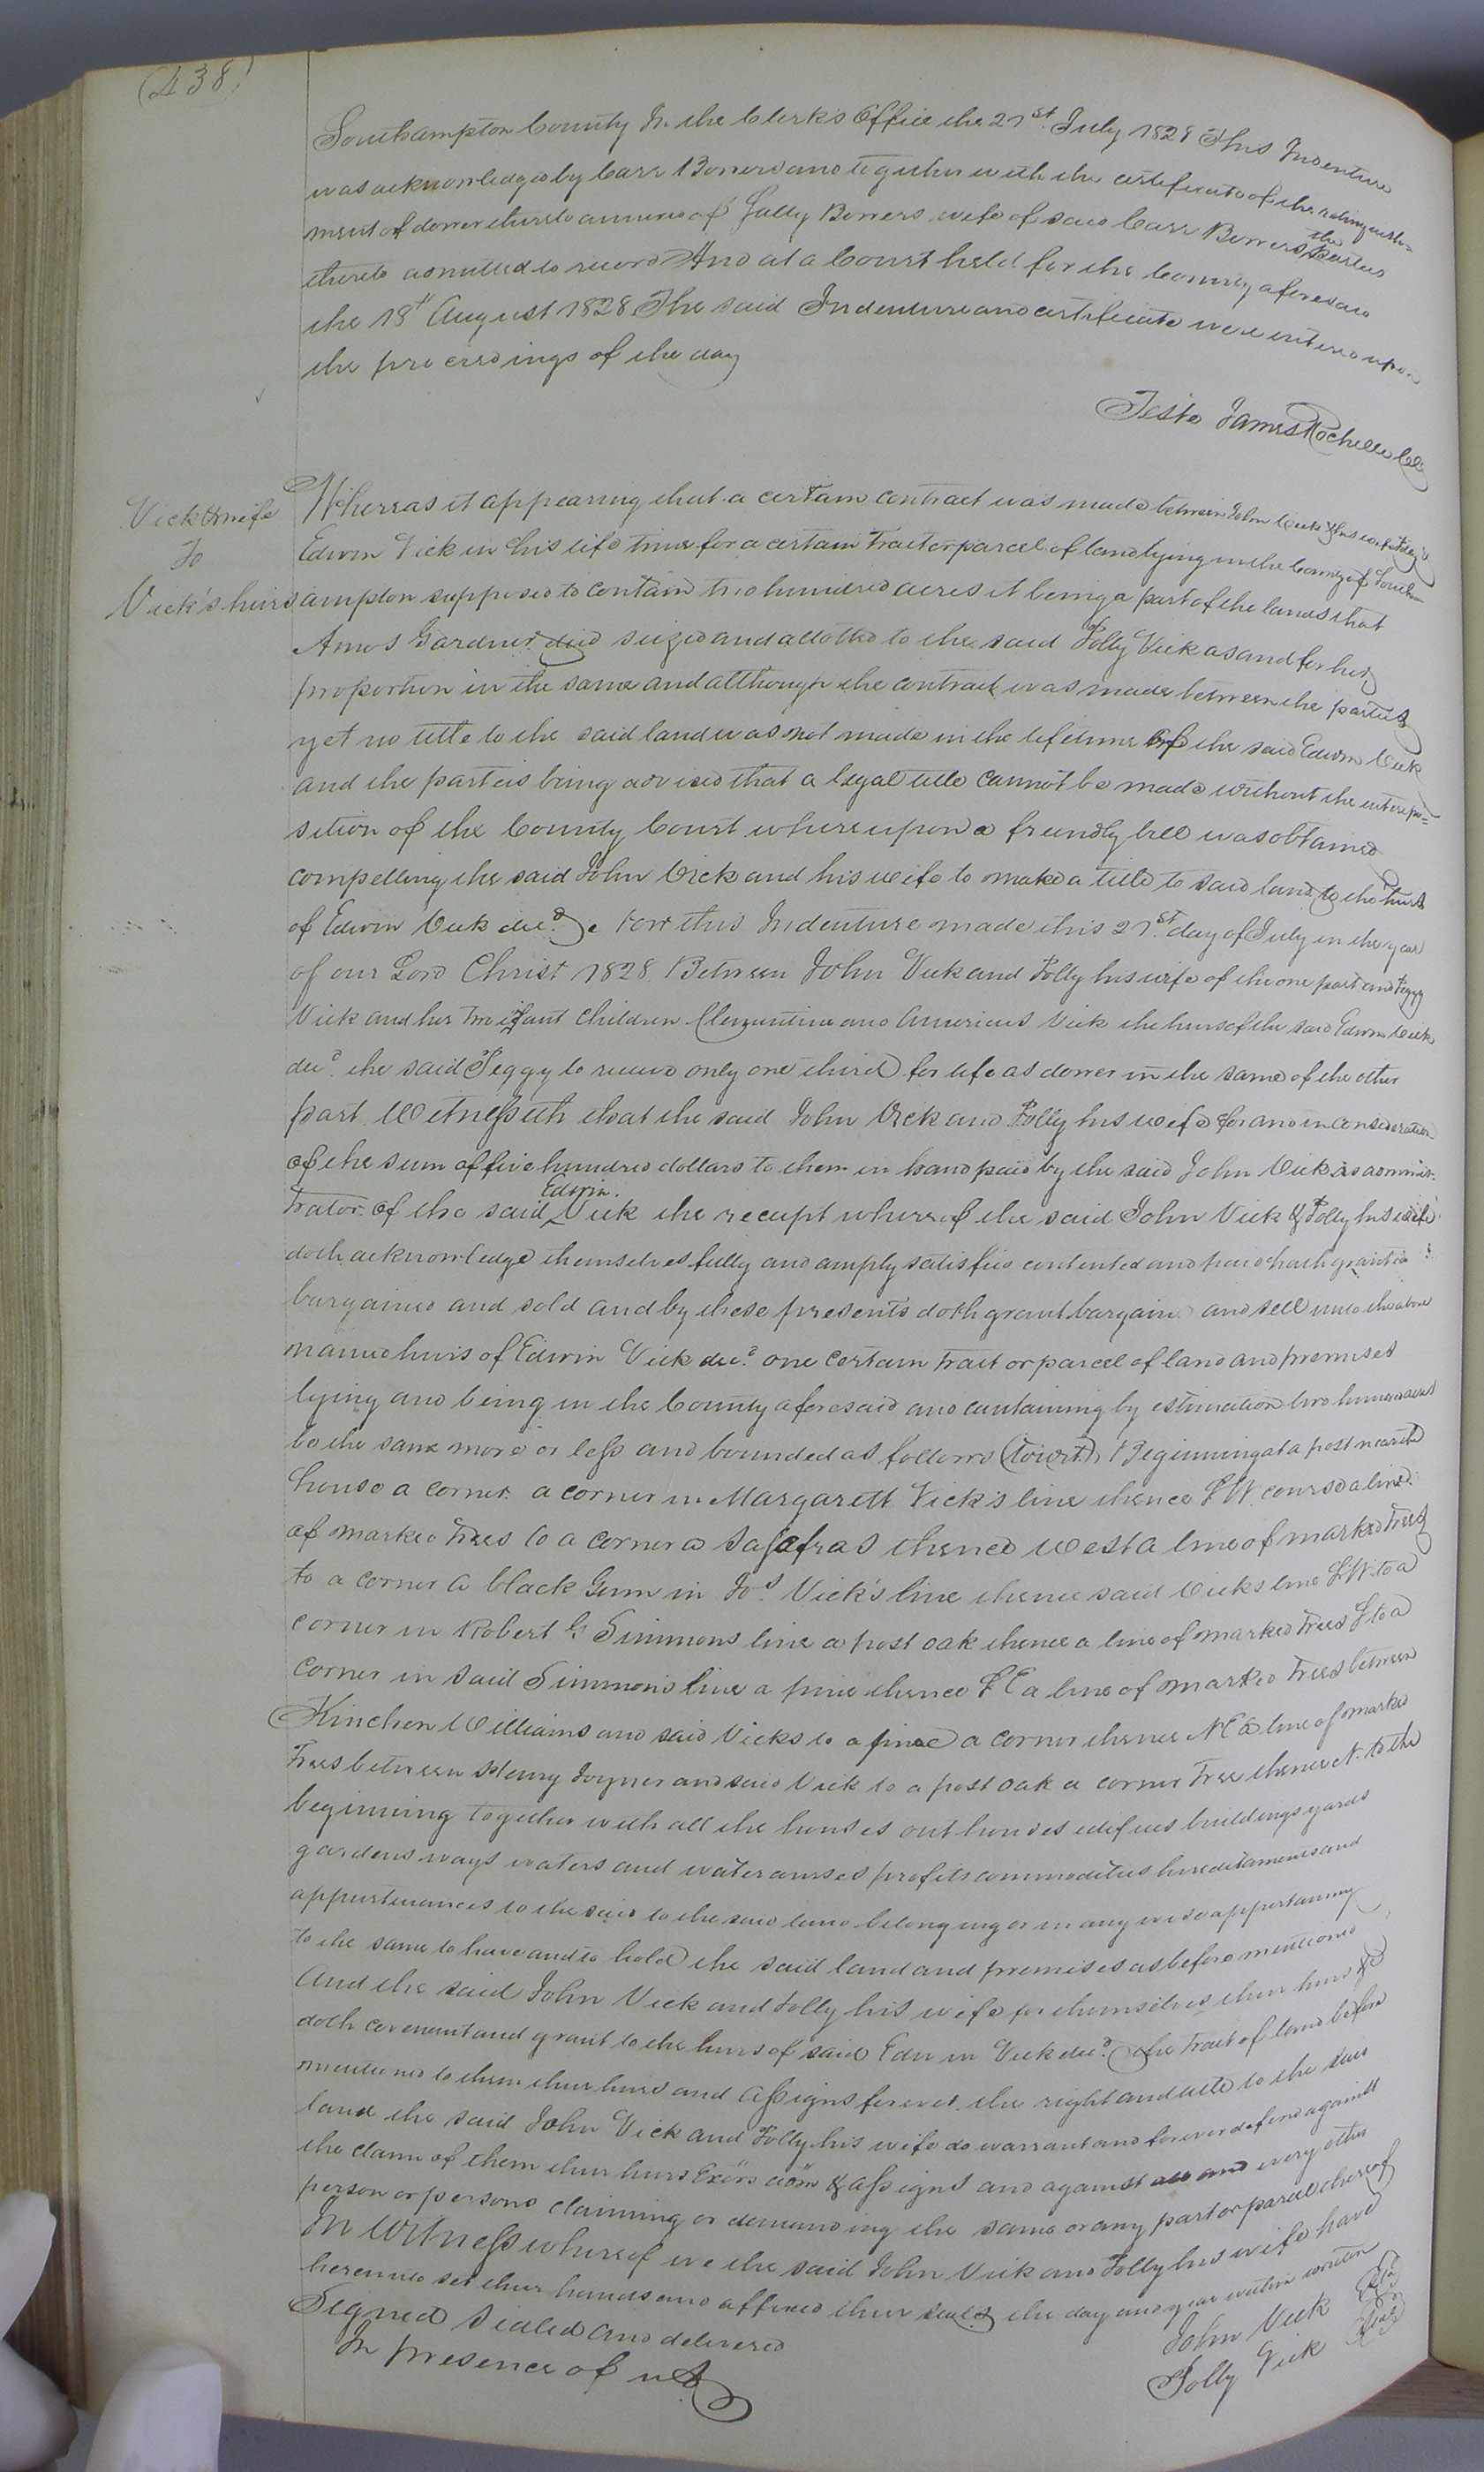 (438)
Southampton County In the Clerk's Office the 21st July 1828 This Indenture
was acknowledged by Carr Bowers and together with the certificate of the relinquish-
ment of dower thereto annexed of Sally Bowers wife of said Carr Bowers the parties
thereto admitted to record And at a Court held for the County aforesaid
the 18th August 1828 The said Indenture and certificate were entered upon
the proceedings of the day
Teste James Rochelle Clk
Vick & wife
To
Vick's heirs
Whereas it appearing that a certain contract was made between John Vick & his wife Polly &
Edwin Vick in his life time for a certain tract or parcel of land lying in the County of South-
ampton supposed to contain two hundred acres it being a part of the lands that
Amos Gardner died seized and allotted to the said Polly Vick as and for her
proportion in the same and although the contract was made between the parties
yet no title to the said land was not made in the lifetime of the said Edwin Vick
and the parteis being advised that a legal title cannot be made without the interpo=
sition of the County Court whereupon a friendly bill was obtained
compelling the said John Vick and his wife to make a title to said land to the heirs
of Edwin Vick decd. Now this Indenture made this 21st day of July in the year
of our Lord Christ 1828 Between John Vick and Polly his wife of the one part and Peggy
Vick and her two ifant children Clementine and Americus Vick the heirs of the said Edwin Vick
decd. the said Peggy to receive only one third for life as dower in the same of the other
part Witnesseth that the said John Vick and Polly his wife for and in consideration
of the sum of five hundred dollars to them in hand paid by the said John Vick as adminis-
trator of the said Edwin Vick the receipt whereof the said John Vick & Polly his wife
doth acknowledge themselves fully and amply satisfied contented and paid hath granted
bargained and sold and by these presents doth grant bargain and sell unto the above
named heirs of Edwin Vick decd. one certain tract or parcel of land and premises
lying and being in the County aforesaid and containing by estimation two hundred acres
be the same more or less and bounded as follows (towit) Beginning at a post near the
house a corner a corner in Margarett Vick's line thence S W. course a line
of marked trees to a corner a Sasafras thence west a line of marked trees
to a corner a black Gum in Jos. Vick's line thence said Vicks line S W to a
corner in Robert G Simmons line a post oak thence a line of marked trees S to a
corner in said Simmons line a pine thence S E a line of marked trees between
Kinchen Williams and said Vicks to a pine a corner thence N E a line of marked
trees between Henry Joyner and said Vick to a post oak a corner tree thence N. to the
beginning together with all the houses out houses edifices buildings yards
gardens ways waters and watercourses profits commodities hereditaments and
appurtenances to the said to the said land belonging or in any wise appertaining
to the same to have and to hold the said land and premises as before mentioned
And the said John Vick and Polly his wife for themselves their heirs &c
doth covenant and grant to the heirs of said Edwin Vick decd. the tract of land before
mentioned to them their heirs and assigns forever the right and title to the said
land the said John Vick and Polly his wife do warrant and forever defend against
the claim of them their heirs Exōrs adōm & assigns and against all and every other
person or persons claiming or demanding the same or any part or parcel thereof
In Witness whereof we the said John Vick and Polly his wife have
hereunto set their hands and affixed their seals the day and year within written
Signed Sealed and delivered
In presence of us
John Vick Seal
Polly Vick Seal